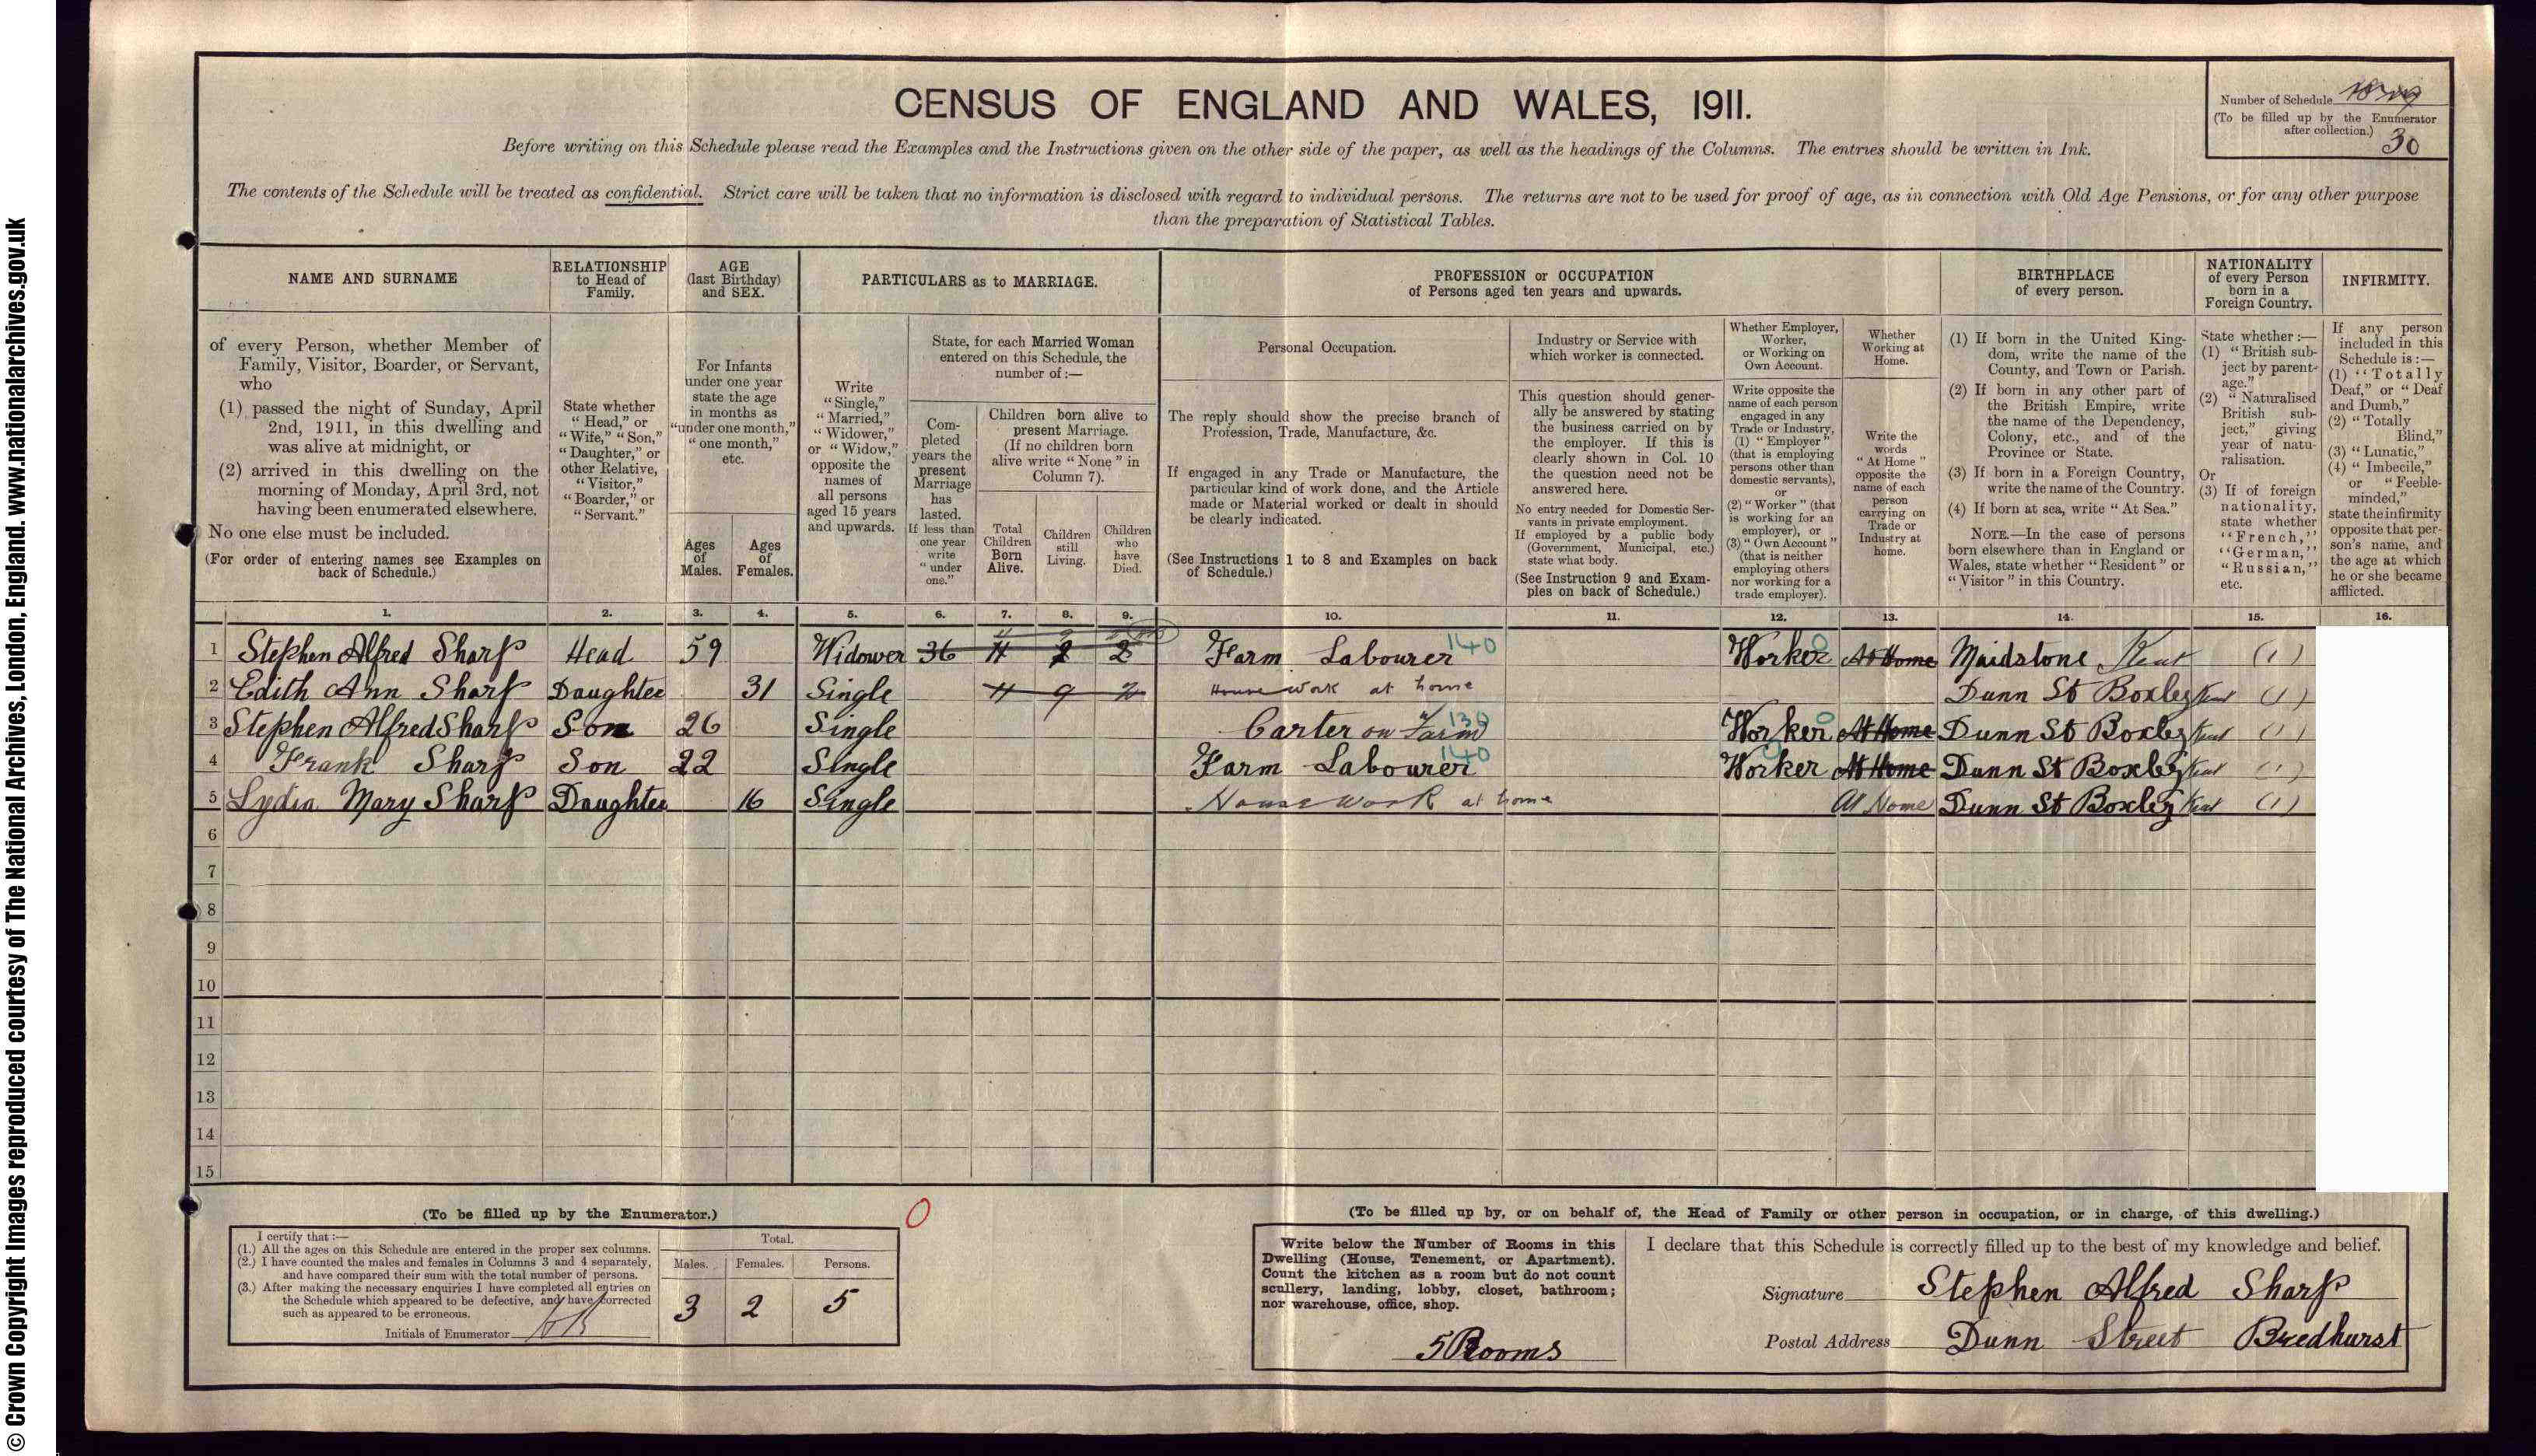 © Crown Copyright Images reproduced courtesy of The National Archives, London, England. www.nationalarchives.gov.uk
CENSUS OF ENGLAND AND WALES, 1911.
Number of Schedule
(To be filled up by the Enumerator
after collection.)
30
Before writing on this Schedule please read the Examples and the Instructions given on the other side of the paper, as well as the headings of the Columns. The entries should be written in Ink.
The contents of the Schedule will be treated as confidential. Strict care will be taken that no information is disclosed with regard to individual persons. The returns are not to be used for proof of age, as in connection with Old Age Pensions, or for any other purpose
than the preparation of Statistical Tables.
NAME AND SURNAME
of every Person, whether Member of
Family, Visitor, Boarder, or Servant,
who
(1) passed the night of Sunday, April
2nd, 1911, in this dwelling and
was alive at midnight, or
(2) arrived in this dwelling on the
morning of Monday, April 3rd, not
having been enumerated elsewhere.
No one else must be included.
(For order of entering names see Examples on
back of Schedule.)
RELATIONSHIP
to Head of
Family.
State whether
"Head," or
"Wife," "Son,"
"Daughter," or
other Relative,
"Visitor,"
"Boarder," or
"Servant."
AGE
(last Birthday)
and SEX.
For Infants
under one year
state the age
in months as
"under one month,"
"one month,"
etc.
Ages
of
Males.
Ages
of
Females.
PARTICULARS as to MARRIAGE.
Write
"Single,"
"Married,"
"Widower,"
or "Widow,"
opposite the
names of
all persons
aged 15 years
and upwards.
State, for each Married Woman
entered on this Schedule, the
number of:—
Com-
pleted
years the
present
Marriage
has
lasted.
If less than
one year
write
"under
one."
Children born alive to
present Marriage.
(If no children born
alive write "None" in
Column 7).
Total
Children
Born
Alive.
Children
still
Living.
Children
who
have
Died.
PROFESSION or OCCUPATION
of Persons aged ten years and upwards.
Personal Occupation.
The reply should show the precise branch of
Profession, Trade, Manufacture, &c.
If engaged in any Trade or Manufacture, the
particular kind of work done, and the Article
made or Material worked or dealt in should
be clearly indicated.
(See Instructions 1 to 8 and Examples on back
of Schedule.)
Industry or Service with
which worker is connected.
This question should gener-
ally be answered by stating
the business carried on by
the employer. If this is
clearly shown in Col. 10
the question need not be
answered here.
No entry needed for Domestic Ser-
vants in private employment.
If employed by a public body
(Government, Municipal, etc.)
state what body.
(See Instruction 9 and Exam-
ples on back of Schedule.)
Whether Employer,
Worker,
or Working on
Own Account.
Write opposite the
name of each person
engaged in any
Trade or Industry,
(1) "Employer"
(that is employing
persons other than
domestic servants),
or
(2) "Worker" (that
is working for an
employer), or
(3) "Own Account"
(that is neither
employing others
nor working for a
trade employer).
Whether
Working at
Home.
Write the
words
"At Home"
opposite the
name of each
person
carrying on
Trade or
Industry at
home.
BIRTHPLACE
of every person.
(1) If born in the United King-
dom, write the name of the
County, and Town or Parish.
(2) If born in any other part of
the British Empire, write
the name of the Dependency,
Colony, etc., and of the
Province or State.
(3) If born in a Foreign Country,
write the name of the Country.
(4) If born at sea, write "At Sea."
NOTE.—In the case of persons
born elsewhere than in England or
Wales, state whether "Resident" or
"Visitor" in this Country.
NATIONALITY
of every Person
born in a
Foreign Country.
State whether:—
(1) "British sub-
ject by parent-
age."
(2) "Naturalised
British sub-
ject," giving
year of natu-
ralisation.
Or
(3) If of foreign
nationality,
state whether
"French,"
"German,"
"Russian,"
etc.
INFIRMITY.
If any person
included in this
Schedule is:—
(1) "Totally
Deaf," or "Deaf
and Dumb,"
(2) "Totally
Blind,"
(3) "Lunatic,"
(4) "Imbecile,"
or "Feeble-
minded,"
state the infirmity
opposite that per-
son's name, and
the age at which
he or she became
afflicted.
1. 2. 3. 4. 5. 6. 7. 8. 9. 10. 11. 12. 13. 14. 15. 16.
1 Stephen Alfred Sharp Head 59 Widower 36 11 2 Farm Labourer 140 Worker 0 At Home Maidstone Kent (1)
2 Edith Ann Sharp Daughter 31 Single 11 9 2 House work at home Dunn St Boxley Kent (1)
3 Stephen Alfred Sharp Son 26 Single Carter on Farm 130 Worker 0 At Home Dunn St Boxley Kent (1)
4 Frank Sharp Son 22 Single Farm Labourer 140 Worker At Home Dunn St Boxley Kent (1)
5 Lydia Mary Sharp Daughter 16 Single House work at home At Home Dunn St Boxley Kent (1)
6
7
8
9
10
11
12
13
14
15
(To be filled up by the Enumerator.)
I certify that:—
(1.) All the ages on this Schedule are entered in the proper sex columns.
(2.) I have counted the males and females in Columns 3 and 4 separately,
and have compared their sum with the total number of persons.
(3.) After making the necessary enquiries I have completed all entries on
the Schedule which appeared to be defective, and have corrected
such as appeared to be erroneous.
Initials of Enumerator
Total.
Males. Females. Persons.
3 2 5
0
(To be filled up by, or on behalf of, the Head of Family or other person in occupation, or in charge, of this dwelling.)
Write below the Number of Rooms in this
Dwelling (House, Tenement, or Apartment).
Count the kitchen as a room but do not count
scullery, landing, lobby, closet, bathroom;
nor warehouse, office, shop.
5 Rooms
I declare that this Schedule is correctly filled up to the best of my knowledge and belief.
Signature Stephen Alfred Sharp
Postal Address Dunn Street Bredhurst